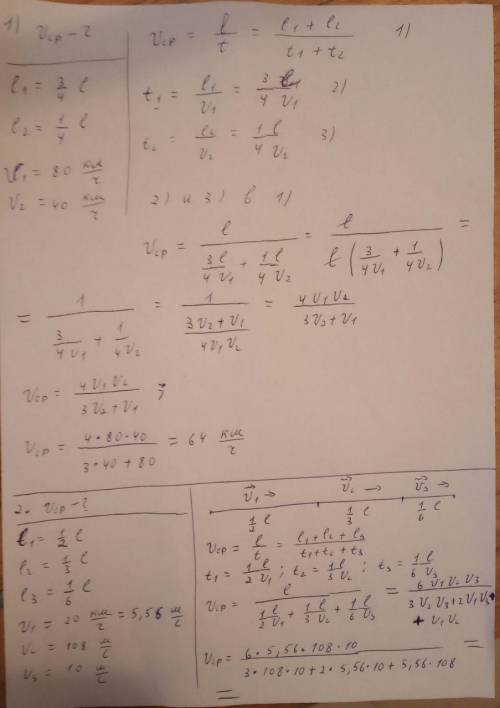 1) v_ср - ?
v_ср = l/t = (l₁ + l₂)/(t₁ + t₂) 1)
l₁ = 3/4 l
l₂ = 1/4 l
v₁ = 80 км/ч
v₂ = 40 км/ч
t₁ = l₁/v₁ = 3/4 l/v₁ 2)
t₂ = l₂/v₂ = 1/4 l/v₂ 3)
2) и 3) в 1)
v_ср = l/(3l/4v₁ + 1l/4v₂) = l/(l(3/4v₁ + 1/4v₂)) =
= 1/(3/4v₁ + 1/4v₂) = 1/((3v₂ + v₁)/4v₁v₂) = 4v₁v₂/(3v₂ + v₁)
v_ср = 4v₁v₂/(3v₂ + v₁) ;
v_ср = (4 · 80 · 40)/(3 · 40 + 80) = 64 км/ч
2. v_ср - ?
l₁ = 1/2 l
l₂ = 1/3 l
l₃ = 1/6 l
v₁ = 20 км/ч = 5,56 м/с
v₂ = 108 м/с
v₃ = 10 м/с
v₁ → v₂ → v₃ →
1/2 l 1/3 l 1/6 l
v_ср = l/t = (l₁ + l₂ + l₃)/(t₁ + t₂ + t₃)
t₁ = 1l/2v₁ ; t₂ = 1l/3v₂ ; t₃ = 1l/6v₃
v_ср = l/(1l/2v₁ + 1l/3v₂ + 1l/6v₃) = 6v₁v₂v₃/(3v₂v₃ + 2v₁v₃ +
+ v₁v₂
v_ср = (6 · 5,56 · 108 · 10)/(3 · 108 · 10 + 2 · 5,56 · 10 + 5,56 · 108) =
=